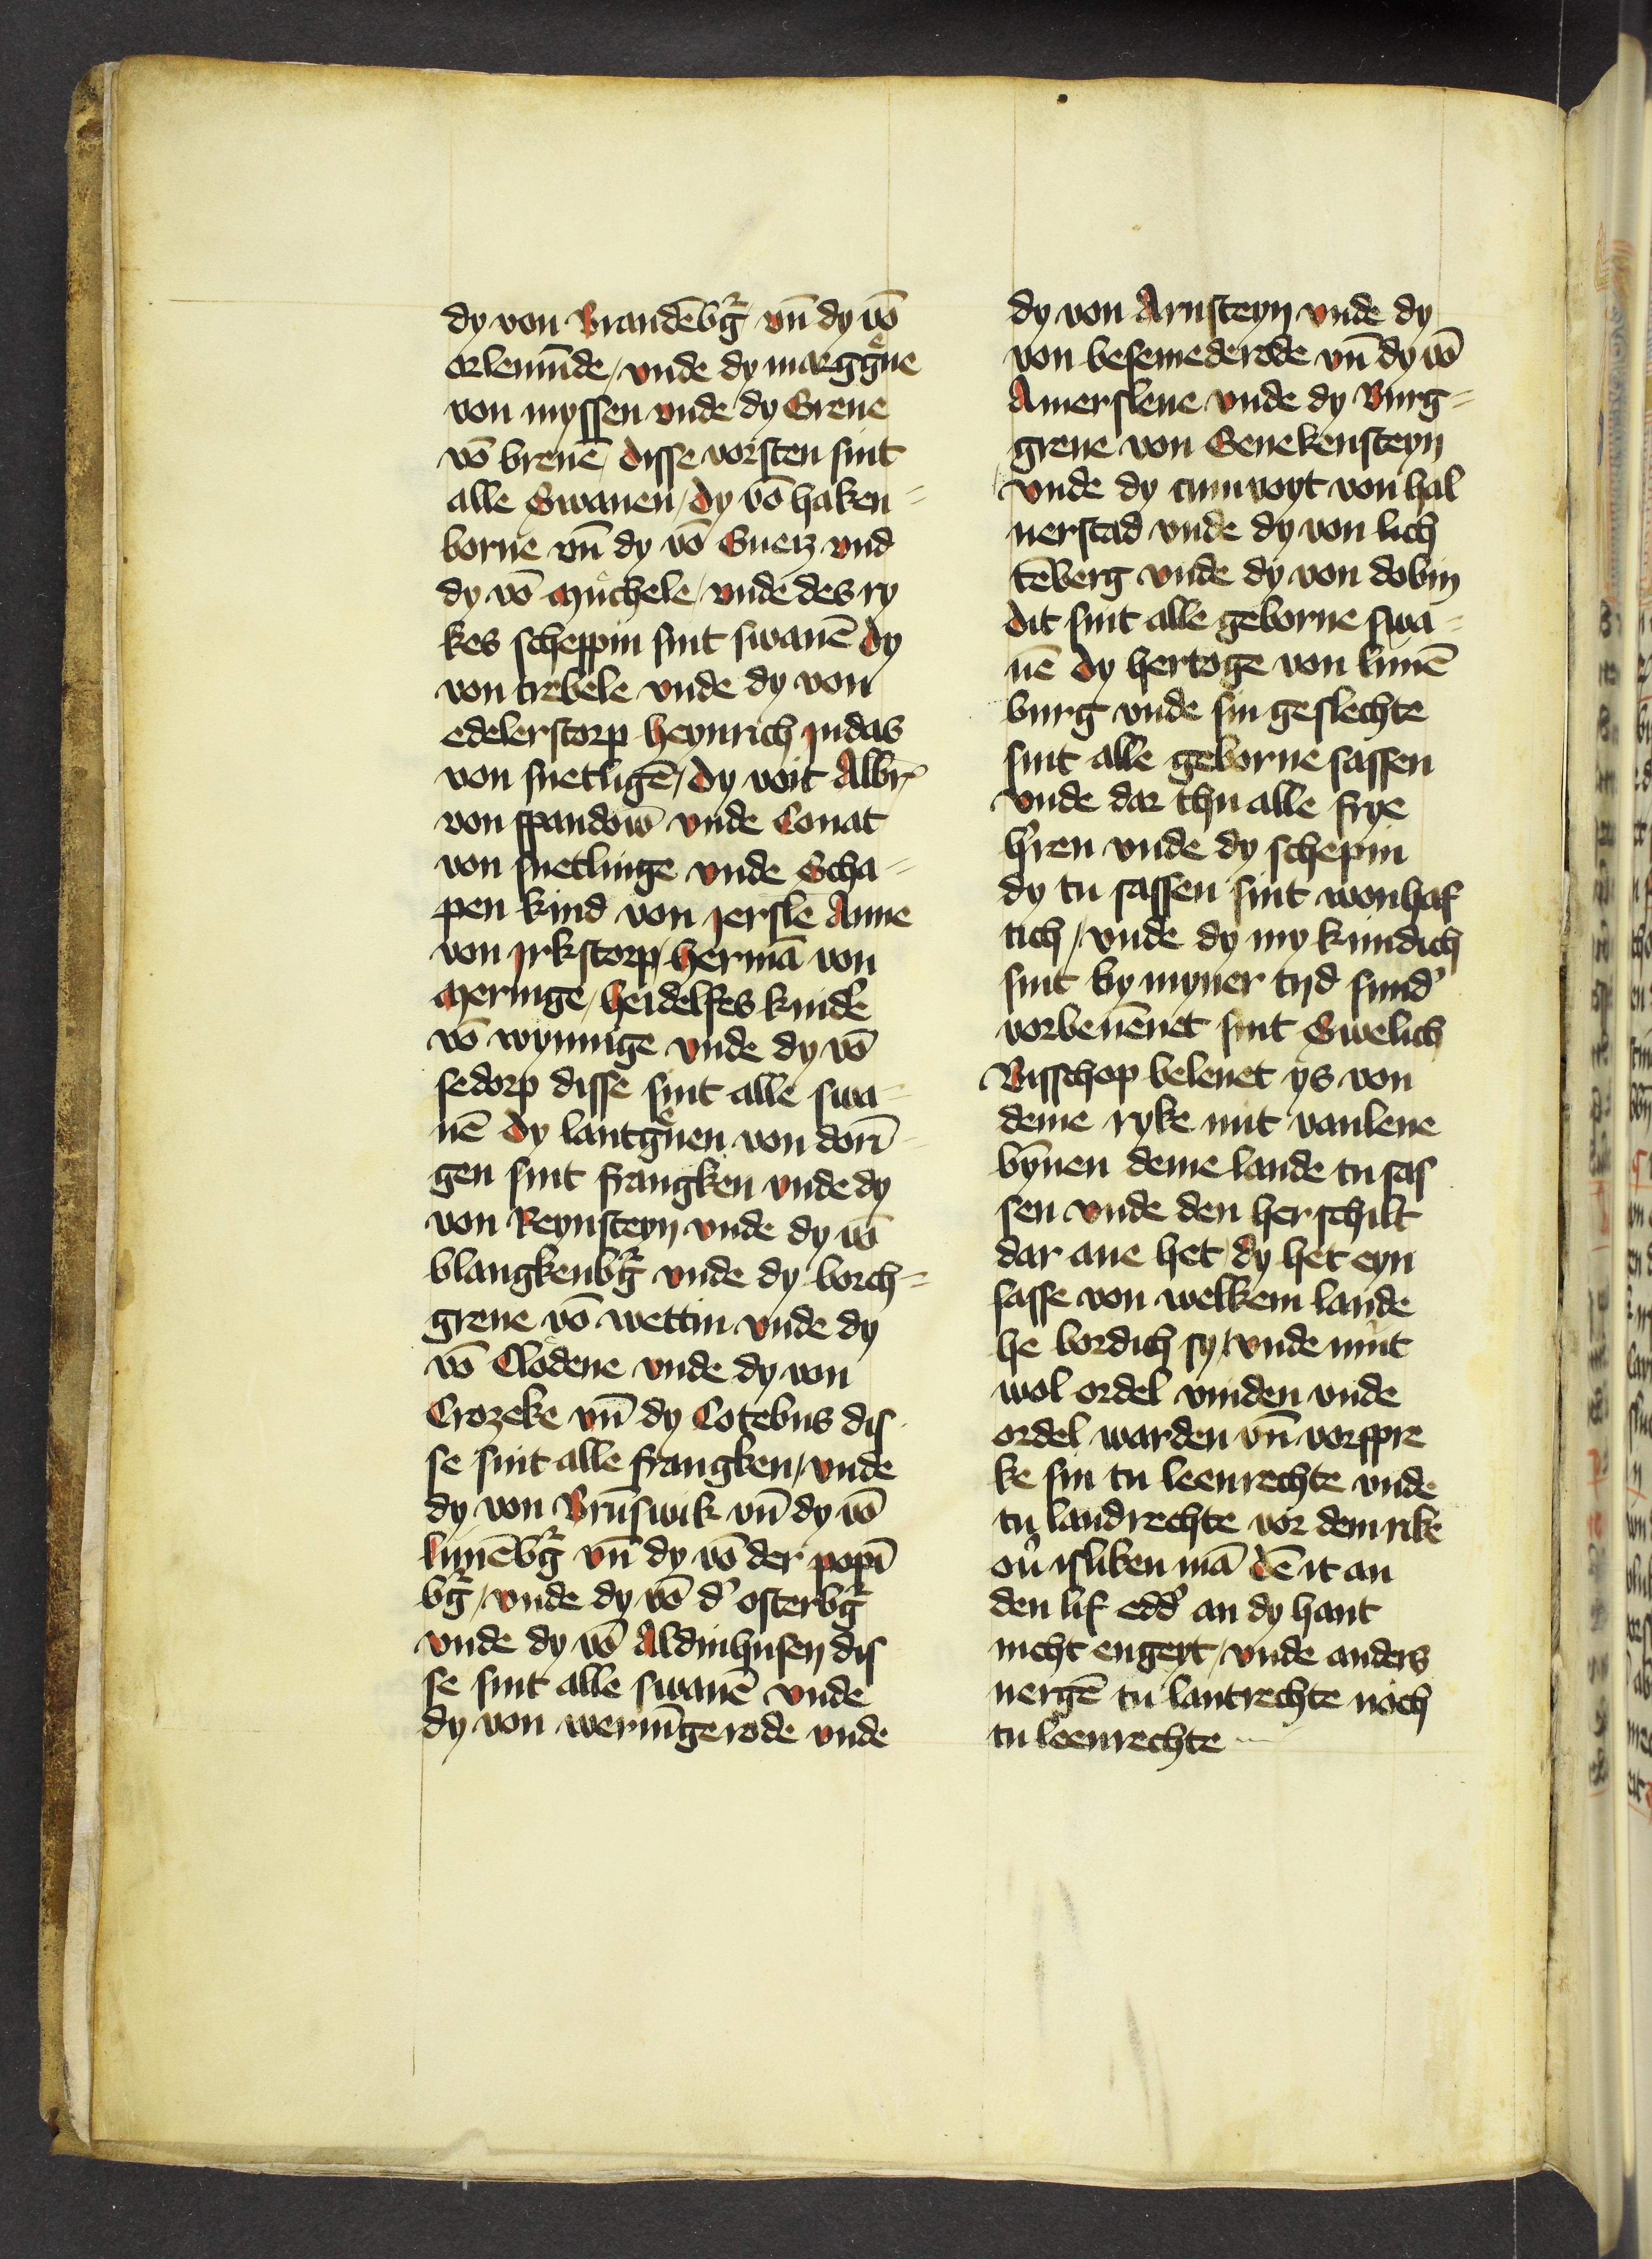 dy von Brandēbg̃ / vn̄ dy vō
orlemūde / vnde dy marggͤue
von myssen vnde dy Greue
vō brenē / disse vorsten sint
alle Swauen / dy vō haken=
borne vn̄ dy vō Gneiz vnd
dy vō Můchele / vnde des ry
kes scheppin sint swauē dy
von trebele vnde dy von
edelerstorp heynrich judas
von snetligē / dy voit Albr̃
von spandow vnde Conat
von snetlinge vnde Scha=
pen kind von jerslē Anne
von jrkstorp / hermā von
Meringe / heidelfes kindͤ
vō wynnige vnde dy vō
sedorp disse sint alle swa=
uē dy lantgͤuen von dori=
gen sint frangken vnde dy
von Reynsteyn vnde dy vō
blangkenbg̃ vnde dy borch=
greue vō wettin vnde dy
vō Clodene vnde dy von
Crozeke vn̄ dy Cotebus dis
se sint alle frangken / vnde
dy von Brūswik vn̄ dy vō
lunēbg̃ vn̄ dy vō der popī
bg̃ / vnde dy vō d' osterbg̃
vnde dy vō Aldinhusen dis
se sint alle swauē vnde
dy von wernīgerode vnde
dy von Arnsteyn vnde dy
von besemederode vn̄ dy vō
Amersleue vnde dy Burg=
greue von Geuekensteyn
vnde dy cumvoyt von hal
uerstad vnde dy von lich
tēberg vnde dy von dobin
dit sint alle geborne swa=
uē dy hertoge von lunē
burg vnde sin geslechte
sint alle geborne sassen
vnde dar thu alle frye
h'ren vnde dy schepin
dy tu sassen sint wonhaf
tich / vnde dy my kundich
sint by myner tyd sund'
vorbenēnet sint Swelich
Bisschop belenet ys von
deme ryke mit vanlene
bȳnen deme lande tu sas
sen vnde den herschilt
dar aue het / dy het eyn
sasse von welkem lande
he bordich sy / vnde mut
wol ordel vinden vnde
ordel warden vn̄ vorspre
ke sin tu leenrechte vnde
tu landrechte vor dem rike
ou' isliken mā dē it an
den lif edd' an dy hant
nicht engeyt / vnde anders
nergē tu lantrechte noch
tu leenrechte